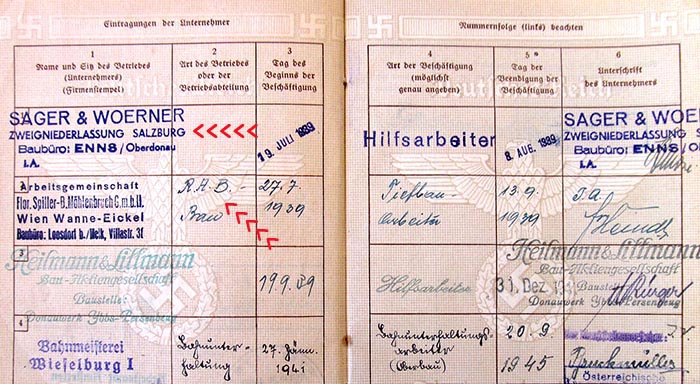 Eintragungen der Unternehmer
1
Name und Sitz des Betriebes
(Unternehmers)
(Firmenstempel)
2
Art des Betriebes
oder der
Betriebsabteilung
3
Tag des
Beginns der
Beschäftigung
SAGER & WOERNER
ZWEIGNIEDERLASSUNG SALZBURG
Baubüro: ENNS/Oberdonau
I.A.
<<<<<
19. JULI 1939
Arbeitsgemeinschaft
Flor. Spiller-B. Möhlenbruch G.m.b.H.
Wien Wanne-Eickel
Baubüro: Loosdorf b/Melk, Villastr. 31
R.A.B.-
Bau
<<<<<
27.7.
1939
3
Heilmann & Littmann
Bau-Aktiengesellschaft
Baustelle:
Donauwerk Ybbs-Persenbeug
19.9.39
4
Bahnmeisterei
Wieselburg I
Bahnunter-
haltung
27. Jänn.
1941
Nummernfolge (links) beachten
4
Art der Beschäftigung
(möglichst
genau angeben)
5*
Tag der
Beendigung der
Beschäftigung
6
Unterschrift
des Unternehmers
Hilfsarbeiter
8. AUG. 1939
SAGER & WOERNER
ZWEIGNIEDERLASSUNG
Baubüro: ENNS/Oberdonau
I.A.
Tiefbau-
Arbeiter
13.9.
1939
I.A.
Hilfsarbeiter
31. Dez.
Heilmann & Littmann
Bau-Aktiengesellschaft
Baustelle:
Donauwerk Ybbs-Persenbeug
Bahnunterhaltungs-
arbeiter
(Oberbau)
20.9.
1945
Österreichische